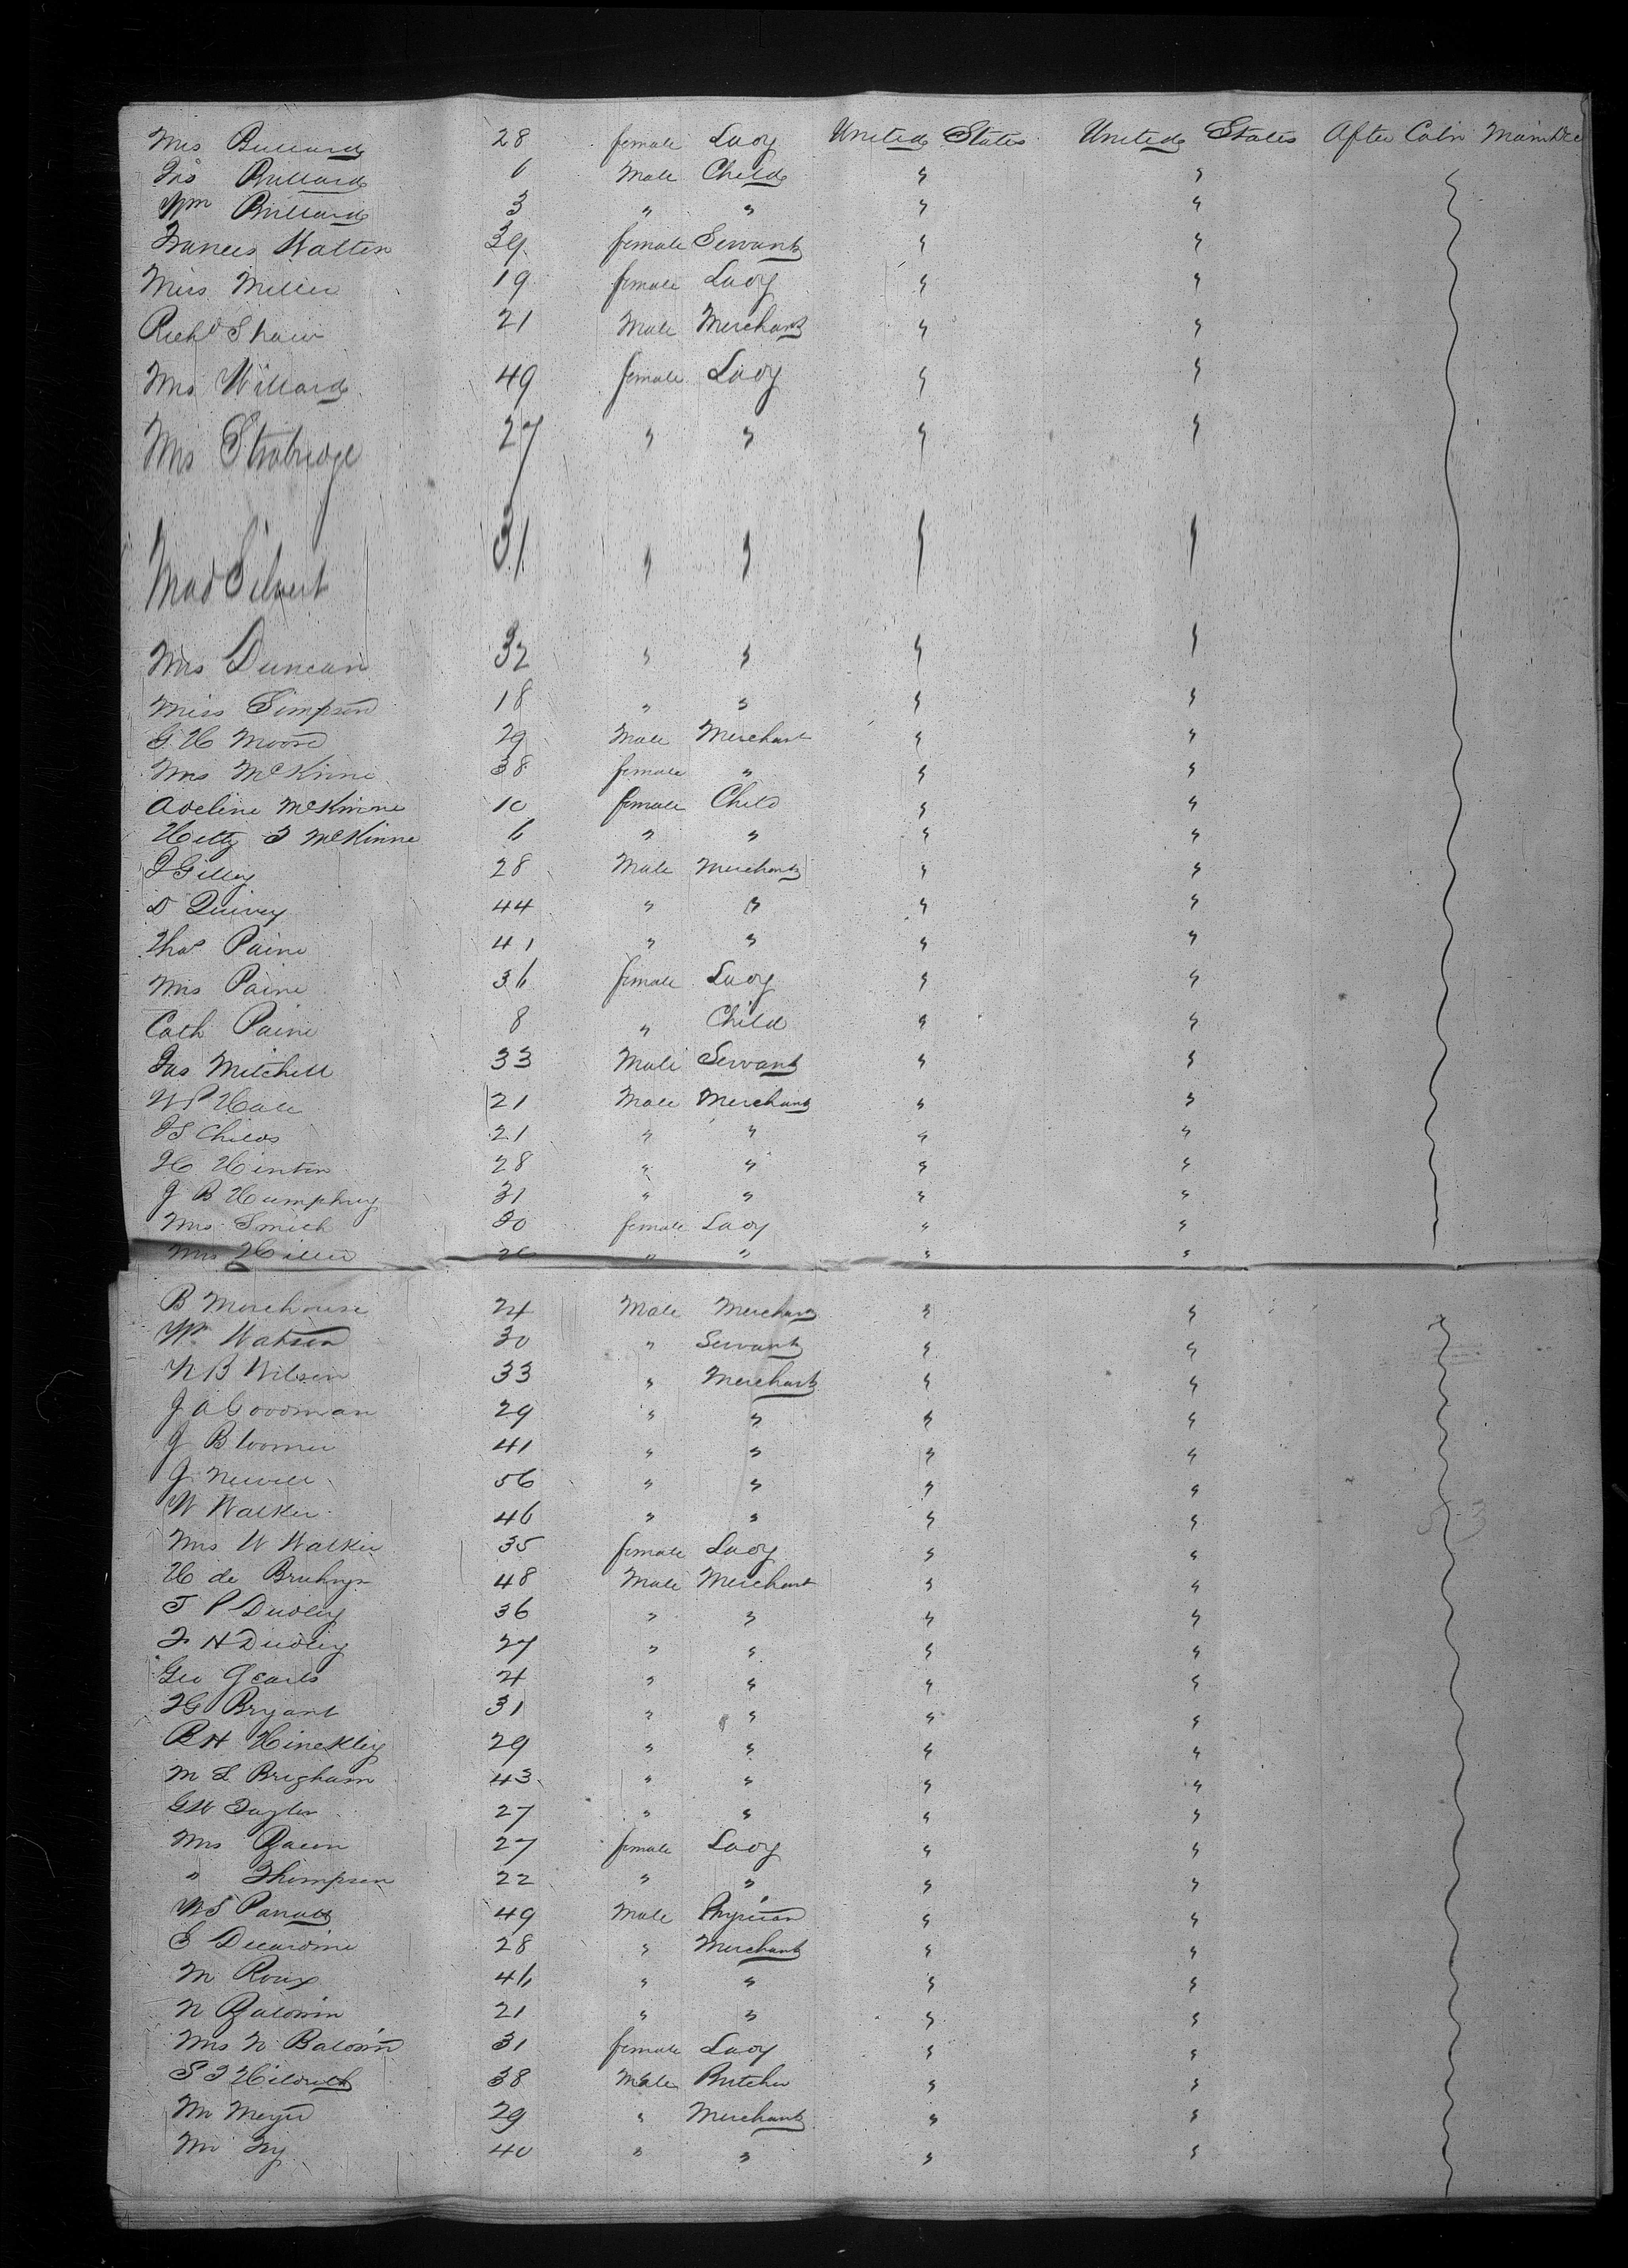 Mrs Bullard 28 female Lady United States United States After Cabin Main Dec
Jas Bullard 6 Male Child " "
Wm Bullard 3 " " " "
Frances Walten 39 female Servant " "
Miss Miller 19 female Lady " "
Richd Shaw 21 Male Merchant " "
Mrs Willard 49 female Lady " "
Mrs Strobridge 27 " " " "
Mad 31 " " " "
Mrs Duncan 32 " " " "
Miss Simpson 18 " " " "
G H Moore 29 Male Merchant " "
Mrs McKinne 38 female " " "
Adeline McKinne 10 female Child " "
Hetty T McKinne 6 " " " "
J Gilley 28 Male Merchant " "
D Quivey 44 " " " "
Thos Paine 41 " " " "
Mrs Paine 36 female Lady " "
Cath Paine 8 " Child " "
Jas Mitchell 33 Male Servant " "
W P Hale 21 Male Merchant " "
J S Childs 21 " " " "
H Hinton 28 " " " "
J B Humphrey 31 " " " "
Mrs Smith 30 female Lady " "
Mrs Hiller 26 " " " "
B Morehouse 24 Male Merchant " "
Wm Watson 30 " Servant " "
N B Wilson 33 " Merchant " "
J A Goodman 29 " " " "
J Bloomer 41 " " " "
J Newell 56 " " " "
W Walker 46 " " " "
Mrs W Walker 35 female Lady " "
H de Bruhnyn 48 Male Merchant " "
T P Dudley 36 " " " "
F H Dudley 27 " " " "
Geo 24 " " " "
J G Bryant 31 " " " "
R H Hinckley 29 " " " "
M L Brigham 43 " " " "
G W Taylor 27 " " " "
Mrs Bacon 27 female Lady " "
" Thompson 22 " " " "
W S Parrott 49 Male Physician " "
E Decardine 28 " Merchant " "
M Roux 46 " " " "
N Baldwin 21 " " " "
Mrs N Baldwin 31 female Lady " "
S T Hildreth 38 Male Butcher " "
M Meyer 29 " Merchant " "
Mr Fry 40 " " " "